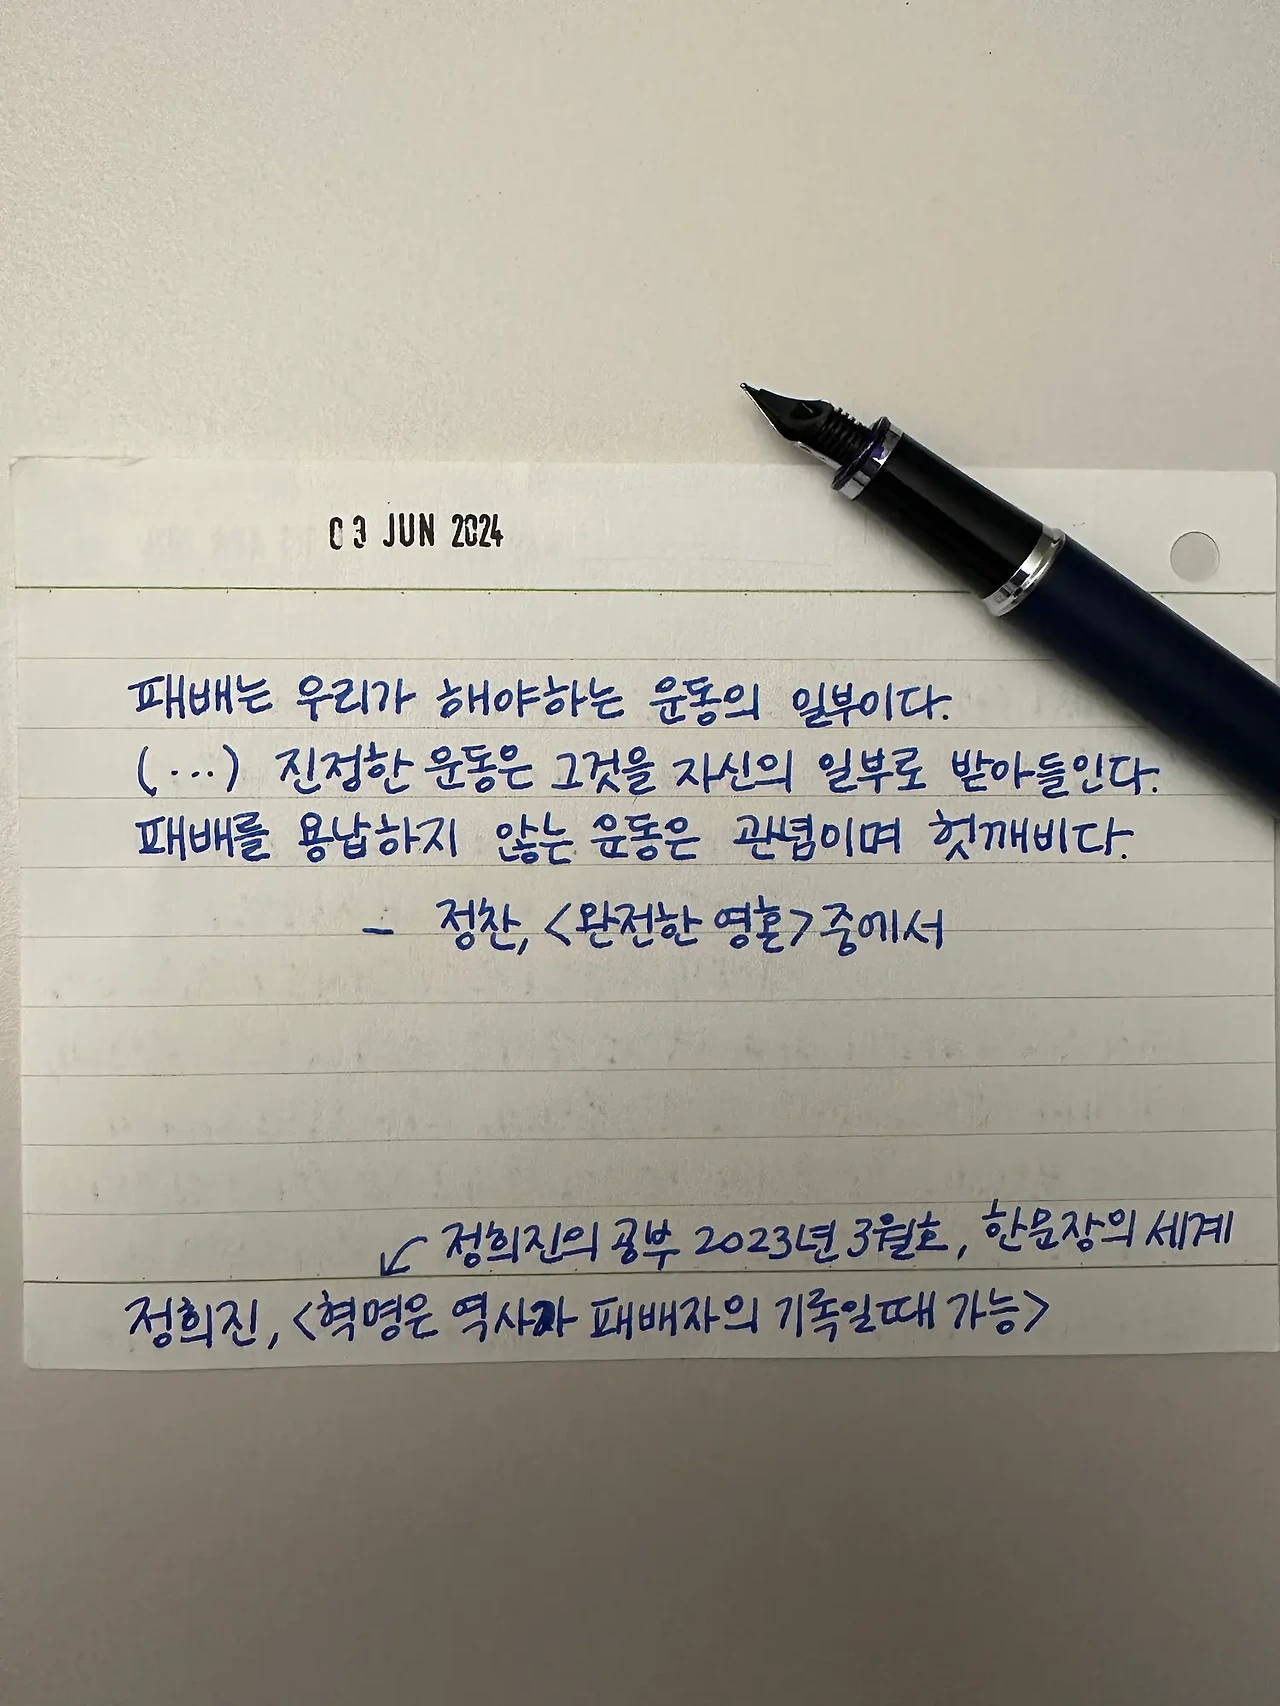 03 JUN 2024
패배는 우리가 해야하는 운동의 일부이다.
(...) 진정한 운동은 그것을 자신의 일부로 받아들인다.
패배를 용납하지 않는 운동은 관념이며 헛깨비다.
- 정찬, <완전한 영혼> 중에서
↙ 정희진의 공부 2023년 3월호, 한문장의 세계
정희진, <혁명은 역사가 패배자의 기록일때 가능>